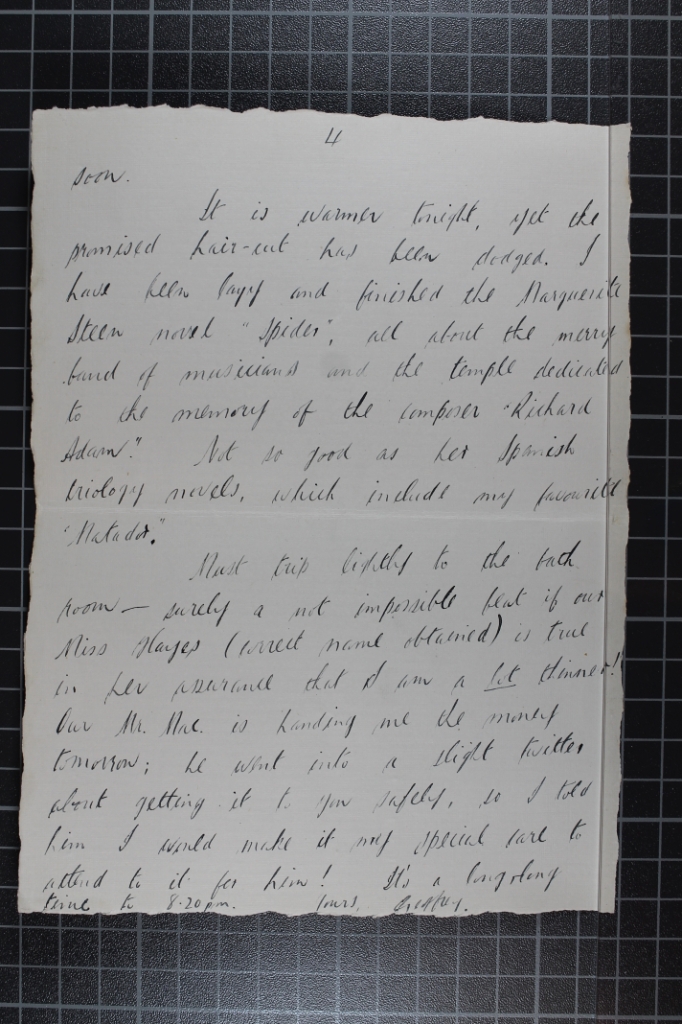 4
soon.
It is warmer tonight, yet the
promised hair-cut has been dodged. I
have been lazy and finished the Marguerite
Steen novel "Spider", all about the merry
band of musicians and the temple dedicated
to the memory of the composer "Richard
Adam." Not so good as her Spanish
triology novels, which include my favourite
"Matador."
Must trip lightly to the bath
room — surely a not impossible feat if our
Miss Hayes (correct name obtained) is true
in her assurance that I am a lot thinner!
Our Mr. Mac. is handing me the money
tomorrow; he went into a slight twitter
about getting it to you safely, so I told
him I would make it my special care to
attend to it for him! It's a long long
time to 8.20 pm. Yours,